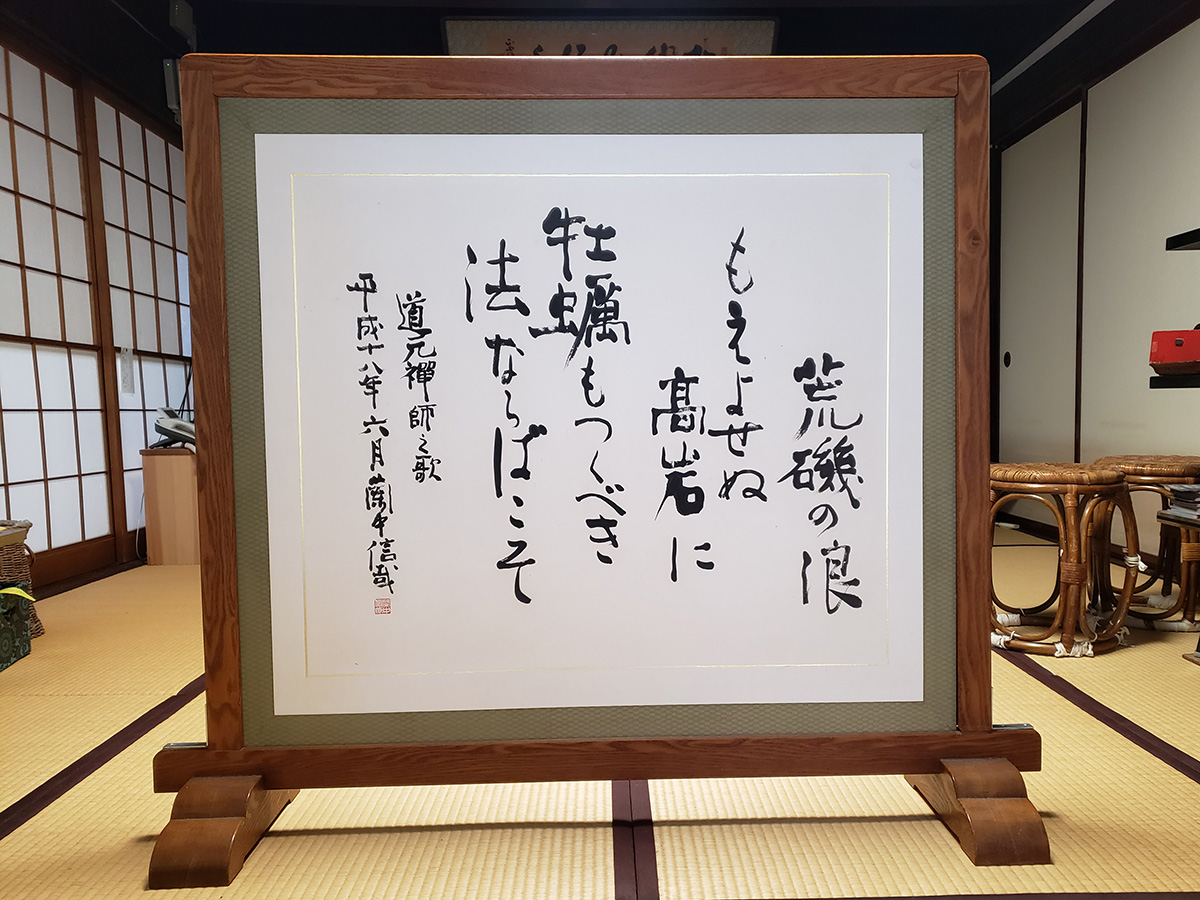 荒磯の浪
もえよせぬ
髙岩に
牡蠣もつくべき
法ならばこそ
道元禅師之歌
平成十八年六月 蘭中信哉